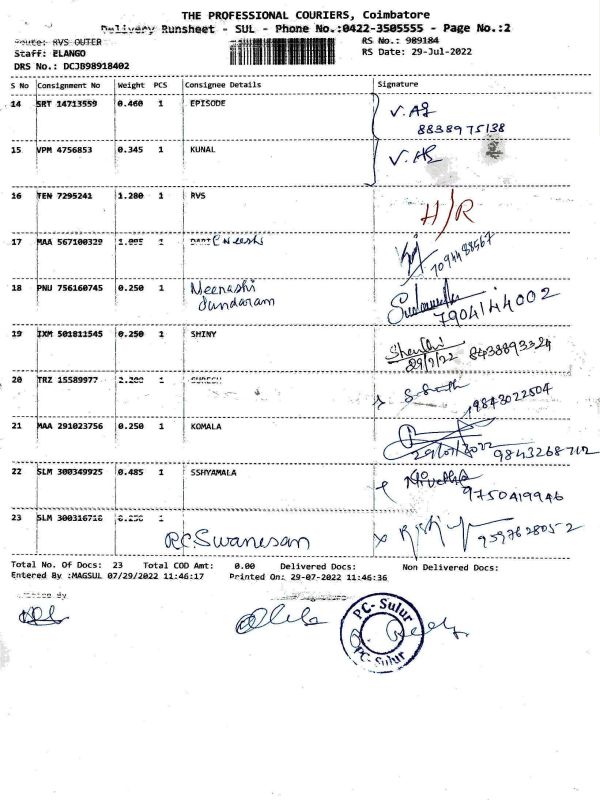 THE PROFESSIONAL COURIERS, Coimbatore
Delivery Runsheet - SUL - Phone No.:0422-3505555 - Page No.:2
Route: RVS OUTER
RS No.: 989184
Staff: ELANGO
RS Date: 29-Jul-2022
DRS No.: DCJB98918402
S No Consignment No Weight PCS Consignee Details Signature
14 SRT 14713559 0.460 1 EPISODE
8838975138
15 VPM 4756853 0.345 1 KUNAL
16 TEN 7295241 1.280 1 RVS
H/R
17 MAA 567100329 1.005 1
18 PNU 756160745 0.250 1 Meenashi
Sundaram
7904144002
19 IXM 501811545 0.250 1 SHINY
29/7/22 8438893324
20 TRZ 15589977 2.200 1 SURESH
9843022504
21 MAA 291023756 0.250 1 KOMALA
29/07/2022 9843268712
22 SLM 300349925 0.485 1 SSHYAMALA
Nivetha
9750419946
23 SLM 300316718 0.250 1
R.C. Swanesan
9597628052
Total No. Of Docs: 23 Total COD Amt: 0.00 Delivered Docs: Non Delivered Docs:
Entered By :MAGSUL 07/29/2022 11:46:17 Printed On: 29-07-2022 11:46:36
PC- Sulur
PC- Sulur